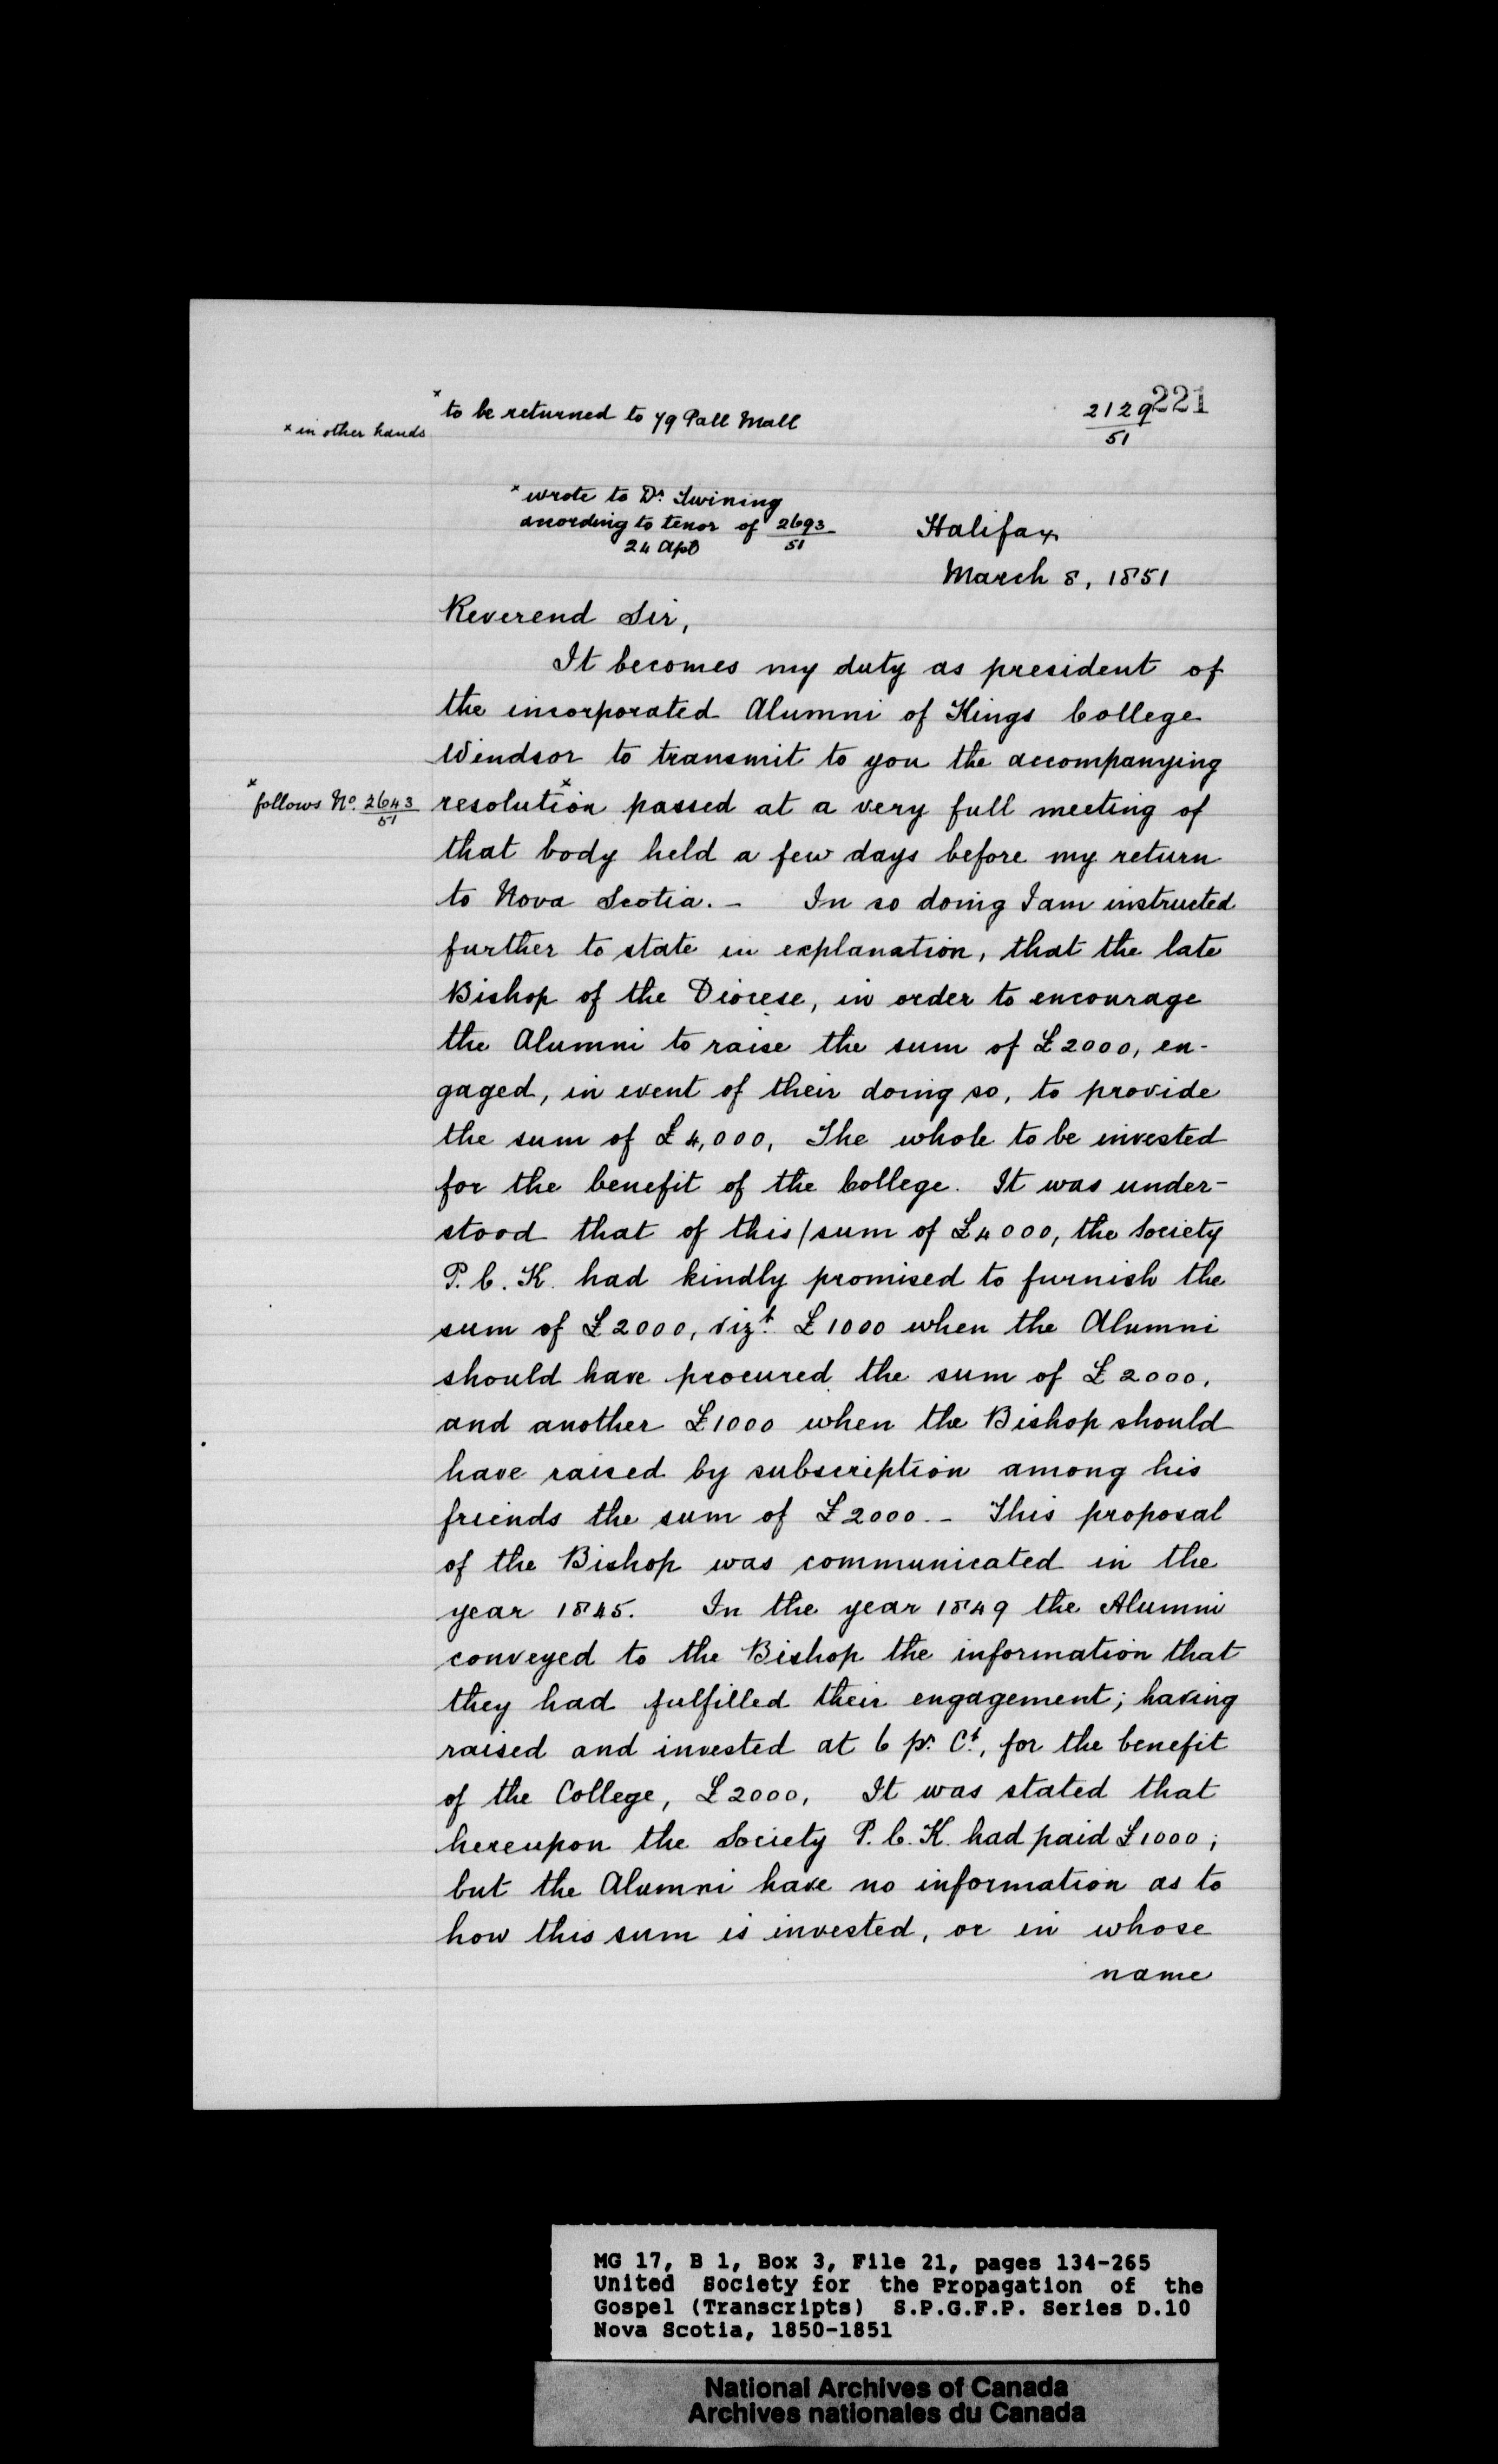 x to be returned to 79 Pall Mall
2129 221
51
x in other hands
x wrote to Dr. Twining
according to tenor of 2693
51
24 Apl
Halifax
March 8, 1851
Reverend Sir,
It becomes my duty as president of
the incorporated Alumni of Kings College
Windsor to transmit to you the accompanying
x follows No. 2643
51
resolution x passed at a very full meeting of
that body held a few days before my return
to Nova Scotia. - In so doing I am instructed
further to state in explanation, that the late
Bishop of the Diocese, in order to encourage
the Alumni to raise the sum of £2000, en-
gaged, in event of their doing so, to provide
the sum of £4,000, The whole to be invested
for the benefit of the College. It was under-
stood that of this/sum of £4000, the Society
P.C.K. had kindly promised to furnish the
sum of £2000, vizt. £1000 when the Alumni
should have procured the sum of £2000,
and another £1000 when the Bishop should
have raised by subscription among his
friends the sum of £2000. - This proposal
of the Bishop was communicated in the
year 1845. In the year 1849 the Alumni
conveyed to the Bishop the information that
they had fulfilled their engagement; having
raised and invested at 6 pr. Ct., for the benefit
of the College, £2000, It was stated that
hereupon the Society P.C.K. had paid £1000;
but the Alumni have no information as to
how this sum is invested, or in whose
name
MG 17, B 1, Box 3, File 21, pages 134-265
United Society for the Propagation of the
Gospel (Transcripts) S.P.G.F.P. Series D.10
Nova Scotia, 1850-1851
National Archives of Canada
Archives nationales du Canada